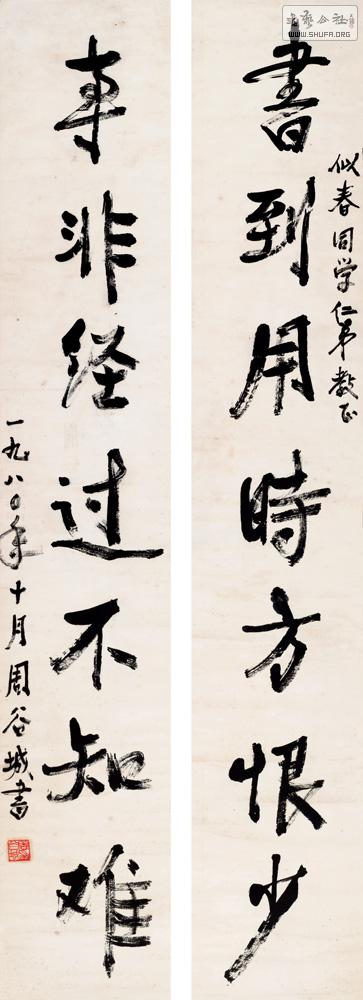 書到用時方恨少
似春同学仁弟教正
事非经过不知难
一九八〇年十月周谷城書
WWW.SHUFA.ORG